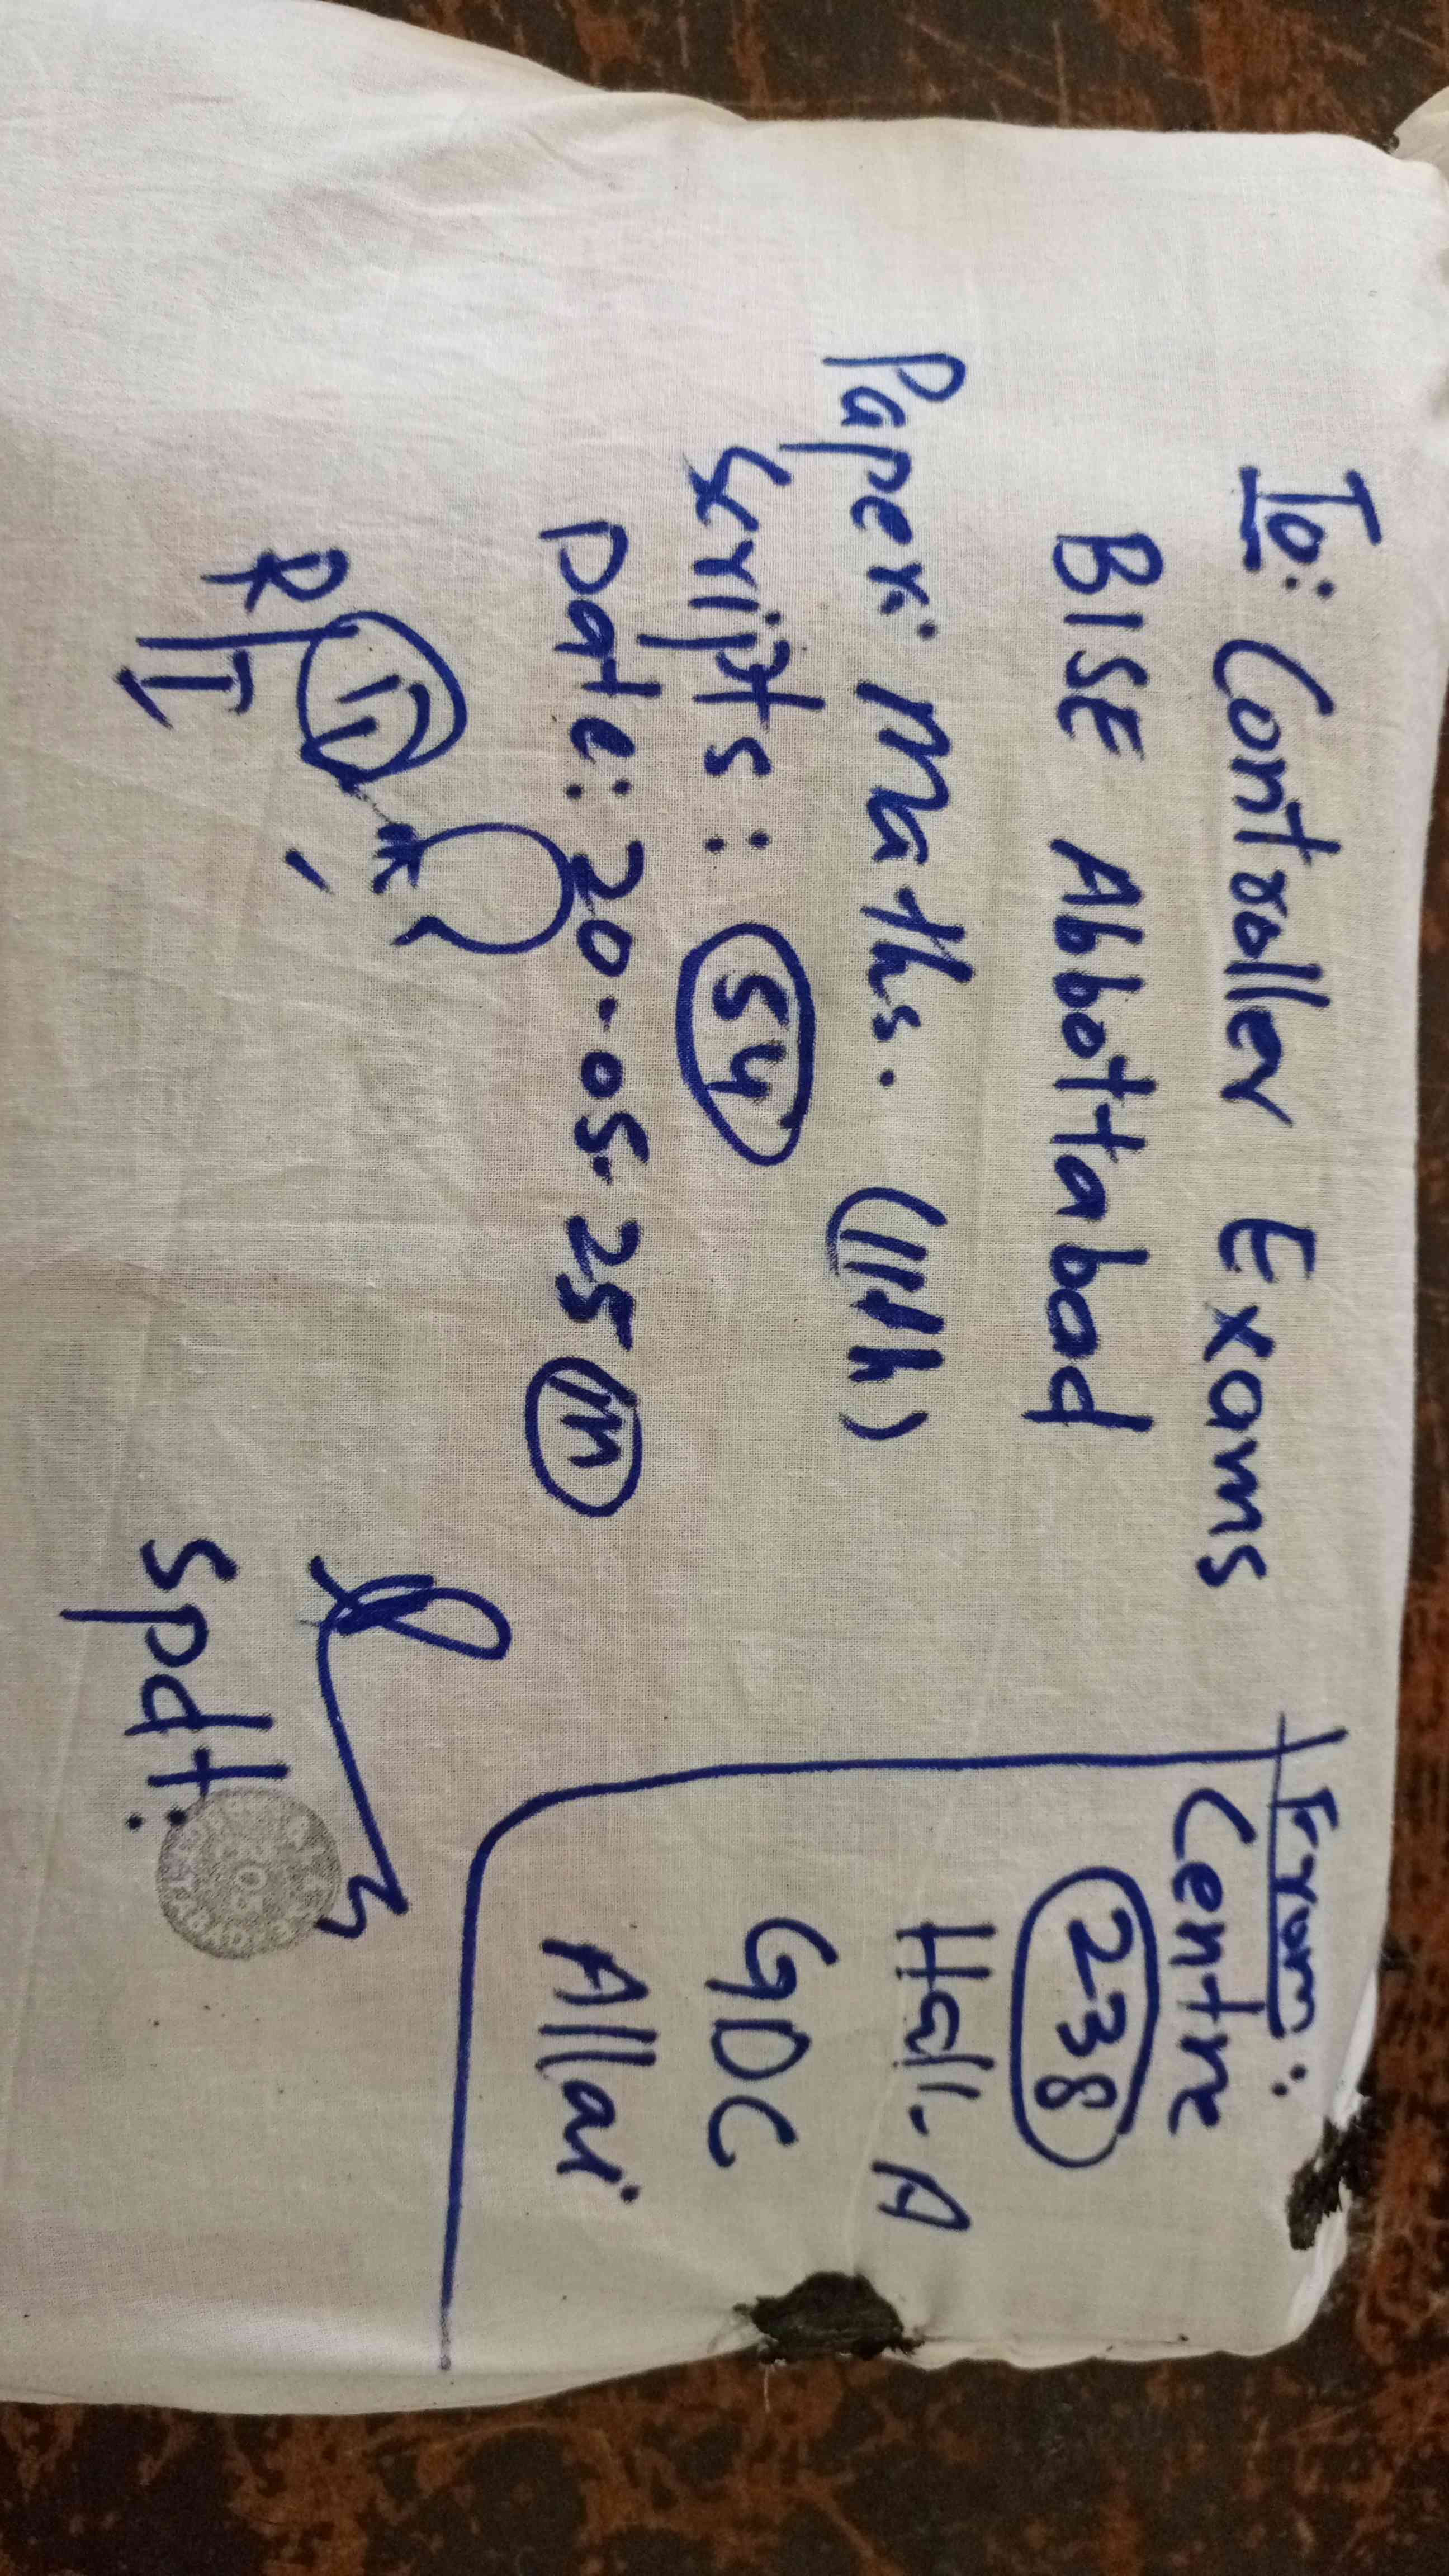 To: Controller Exams
BISE Abbottabad
Paper: Maths. (11th)
Scripts: 54
Date: 20.05.25 M
R/I
Spdt:
From:
Centre
238
Hall-A
GDC
Allai